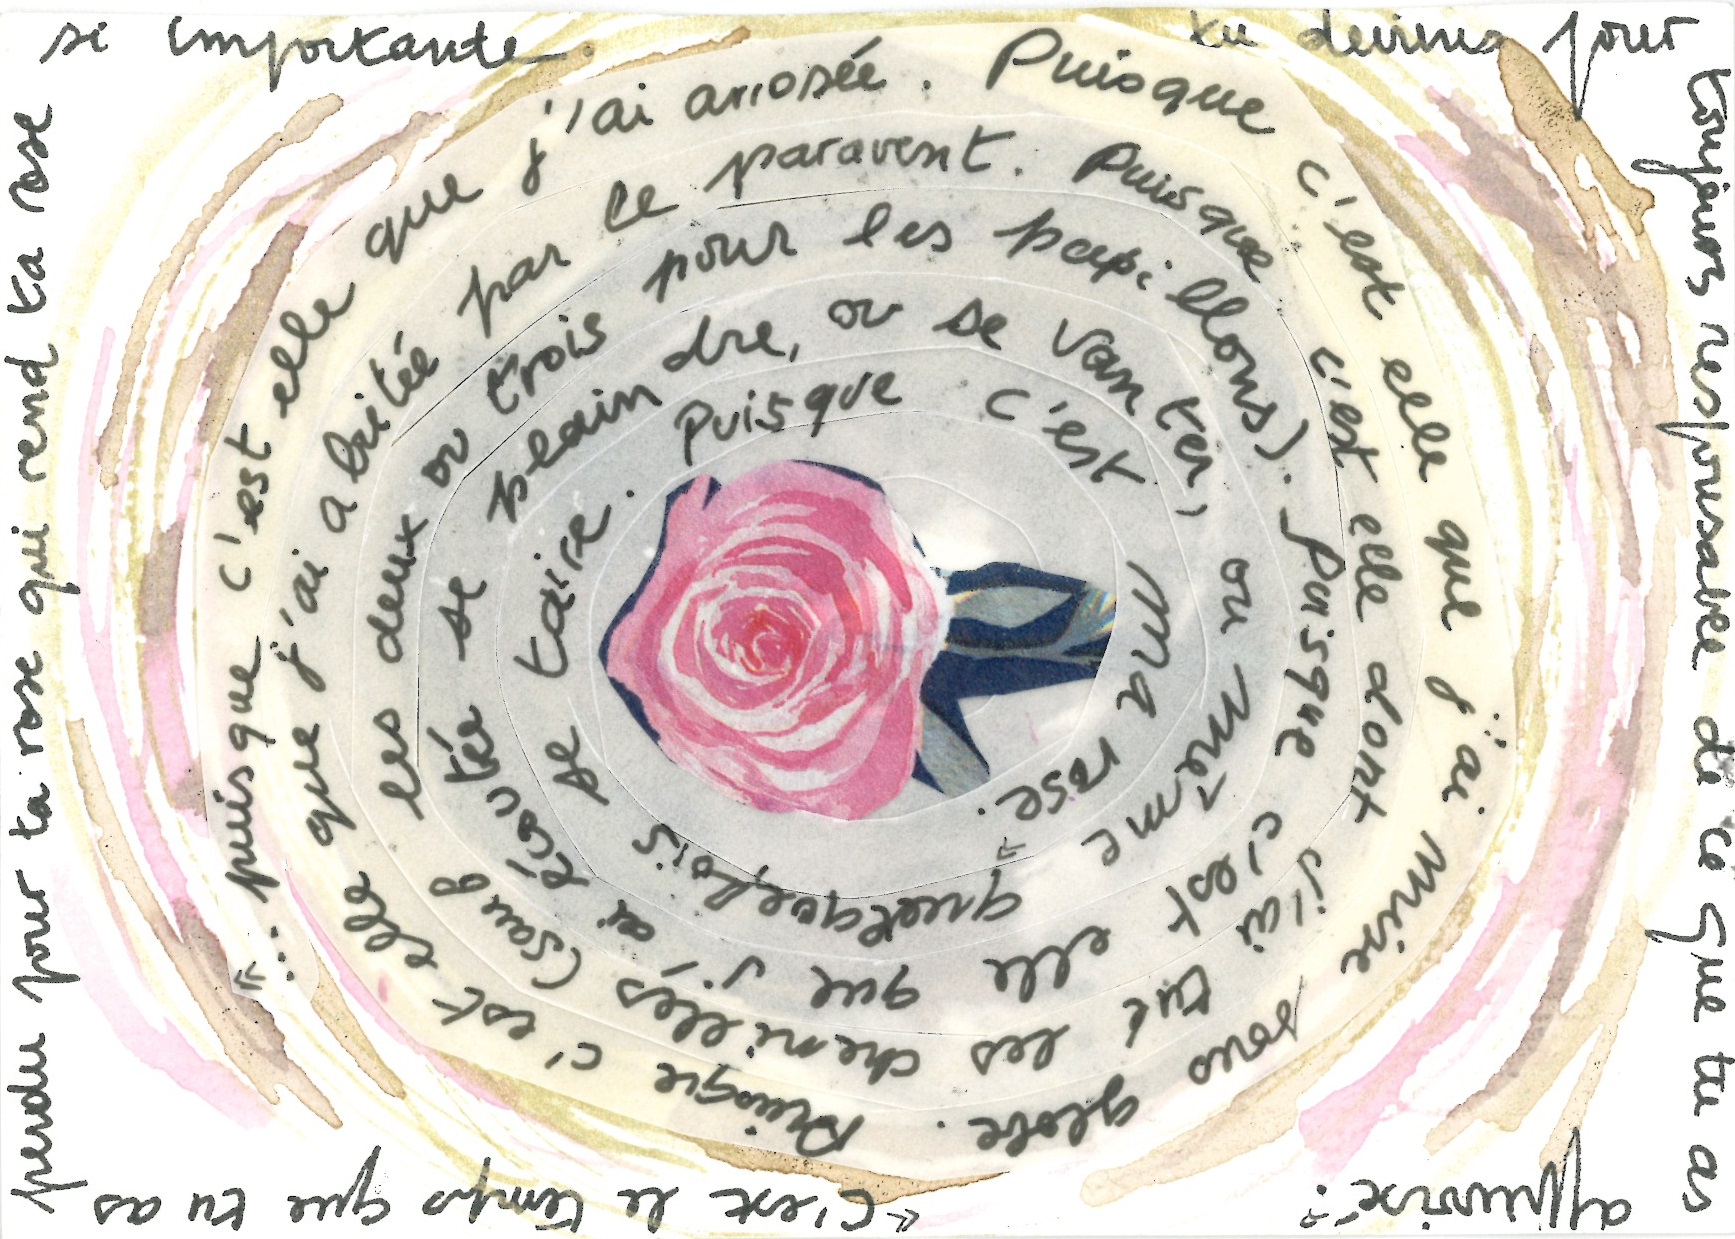 «... puisque c'est elle que j'ai arrosée. Puisque c'est elle que j'ai mise sous globe.
Puisque c'est elle que j'ai abritée par le paravent. Puisque c'est elle dont j'ai tué les chenilles (sauf
les deux ou trois pour les papillons). Puisque c'est elle que j'ai écoutée
se plaindre, ou se vanter, ou même quelquefois
se taire. Puisque c'est ma rose.»
«C'est le temps que tu as
perdu pour ta rose qui rend ta rose
si importante.
tu deviens pour
toujours responsable de ce que tu as
apprivoisé.»